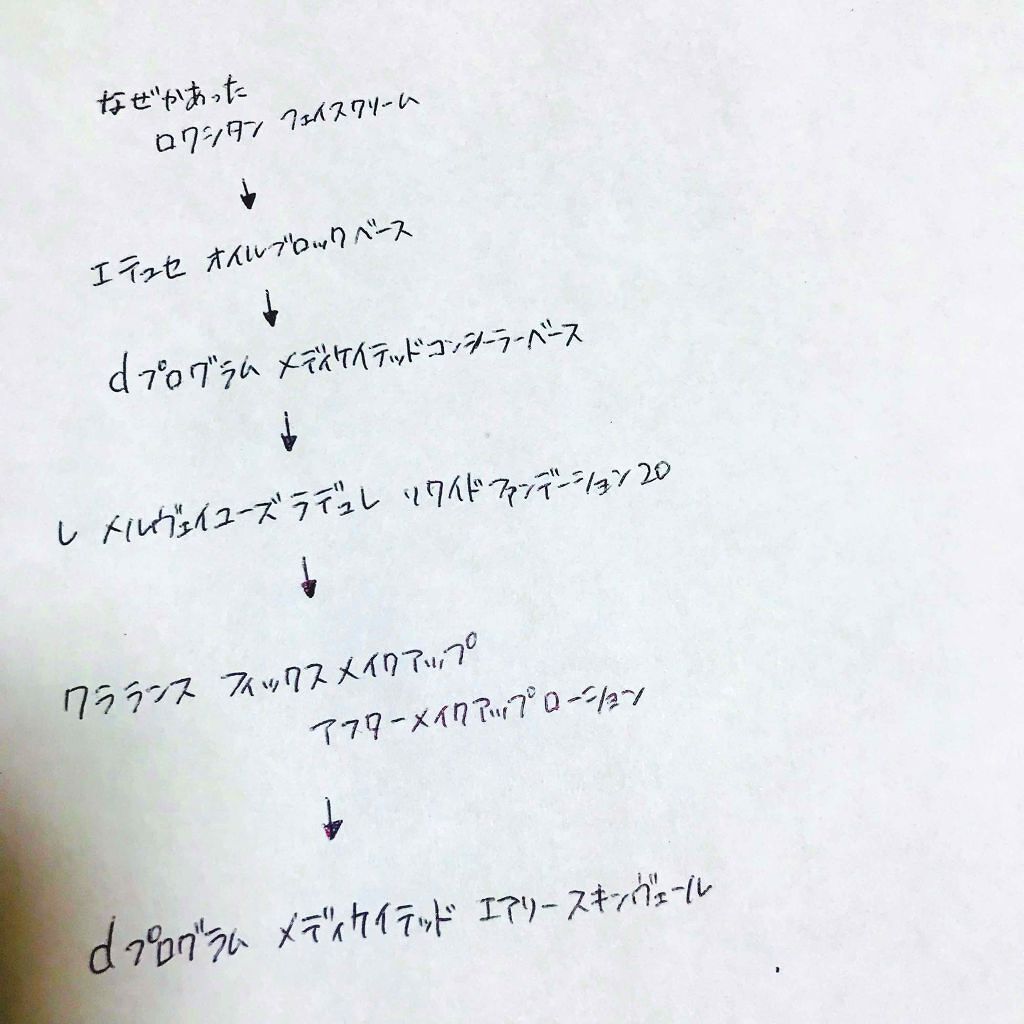 なぜかあった
ロクシタン フェイスクリーム
↓
エテュセ オイルブロックベース
↓
dプログラム メディケイテッドコンシーラーベース
↓
レ メルヴェイユーズ ラデュレ リクイドファンデーション20
↓
クラランス フィックスメイクアップ
アフターメイクアップローション
↓
dプログラム メディケイテッド エアリースキンヴェール